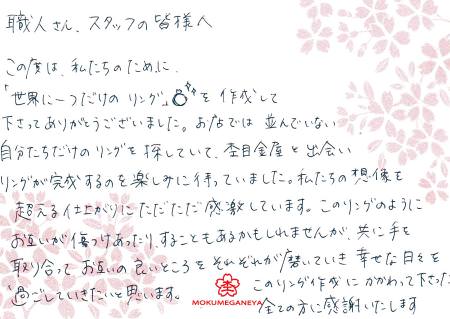 職人さん、スタッフの皆様へ
この度は、私たちのために、
「世界に一つだけの リング」を 作成して
下さってありがとうございました。お店では 並んでいない
自分たちだけのリングを 探していて、杢目金屋と出会い
リングが完成するのを楽しみに待っていました。私たちの想像を
超える仕上がりにただただ 感激しています。このリングのように
お互いが傷つけあったり、することもあるかもしれませんが、共に手を
取り合って お互いの良いところを それぞれが磨いていき 幸せな日々を
過ごしていきたいと思います。
このリング作成に かかわって下さった
全ての方に感謝いたします
MOKUMEGANEYA